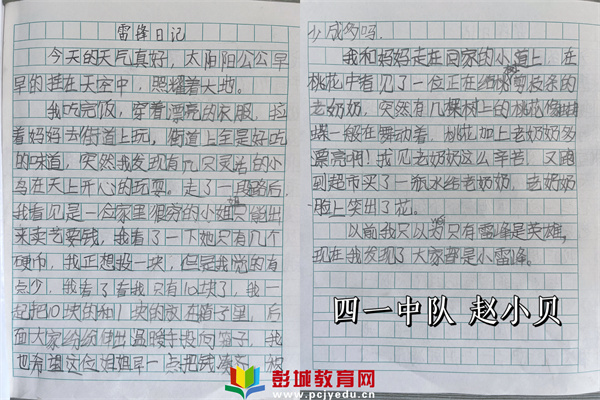 雷锋日记
今天的天气真好，太阳阳公公早
早的挂在天空中，照耀着大地。
我吃完饭，穿着漂亮的衣服，拉
着妈妈去街道上玩，街道上全是好吃
的味道，突然我发现有几只灵活的小
鸟在天上开心的玩耍。走了一段路后，
我看见是一位家里很穷的小姐姐只能出
来卖艺要钱，我看了一下她只有几个
硬巾，我正想投一块，但是我觉的有
点少，我看了看我只有10块了，我一
起把10块的和1块的放在箱子里，后
面大家纷纷伸出温暖手投向箱子，我
也希望这位姐姐早一点把钱凑齐，
少成多吗。
我和妈妈走在回家的小道上，在
桃花中看见了一位正在给树剪枝条的
老奶奶，突然有几棵树上的桃花像蝴
蝶一般在舞动着，桃花加上老奶奶多
漂亮啊！我见老奶奶这么辛苦，又跑
到超市买了一瓶水给老奶奶，老奶奶
脸上笑出了花。
以前我只以为只有雷锋是英雄，
现在我发现了大家都是小雷锋。
四一中队 赵小贝
彭城教育网
www.pcjyedu.cn